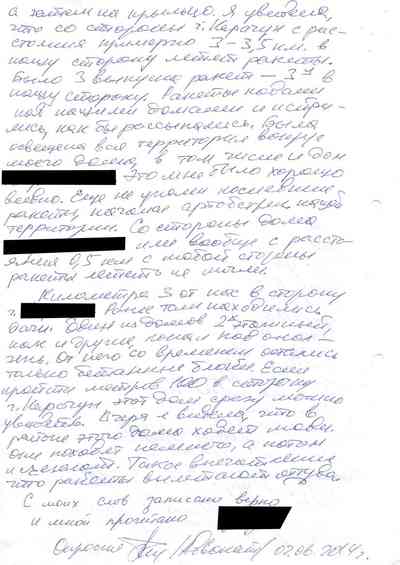 а затем на крыльцо. Я увидела,
что со стороны г. Карачун с рас-
стояния примерно 3-3,5 км. в
нашу сторону летят ракеты.
Было 3 выпуска ракет — 3 в
нашу сторону. Ракеты падали
над нашими домами и искри-
лись, как бы рассыпались. Была
освещена вся территория вокруг
моего дома, в том числе и дом
Это мне было хорошо
видно. Еще не упали последние
ракеты, начался артобстрел нашей
территории. Со стороны дома
или вообще с расстоя-
яния 0,5 км с любой стороны
ракеты лететь не могли.
Километра 3 от нас в сторону
г. Ранее там находились
дачи. Один из домов 2х этажный,
как и другие, попал под огонь
От него со временем остались
только бетонные блоки. Если
пройти метров 100 в сторону
г. Карачун этот дом сразу можно
увидеть. Вчера я видела, что в
районе этого дома ходят люди.
Они походят немного, а потом
и исчезают. Такое впечатление,
что ракеты вылетают оттуда.
С моих слов записано верно
и мной прочитано
Опросил /Адвокат/ 02.06.2014 г.